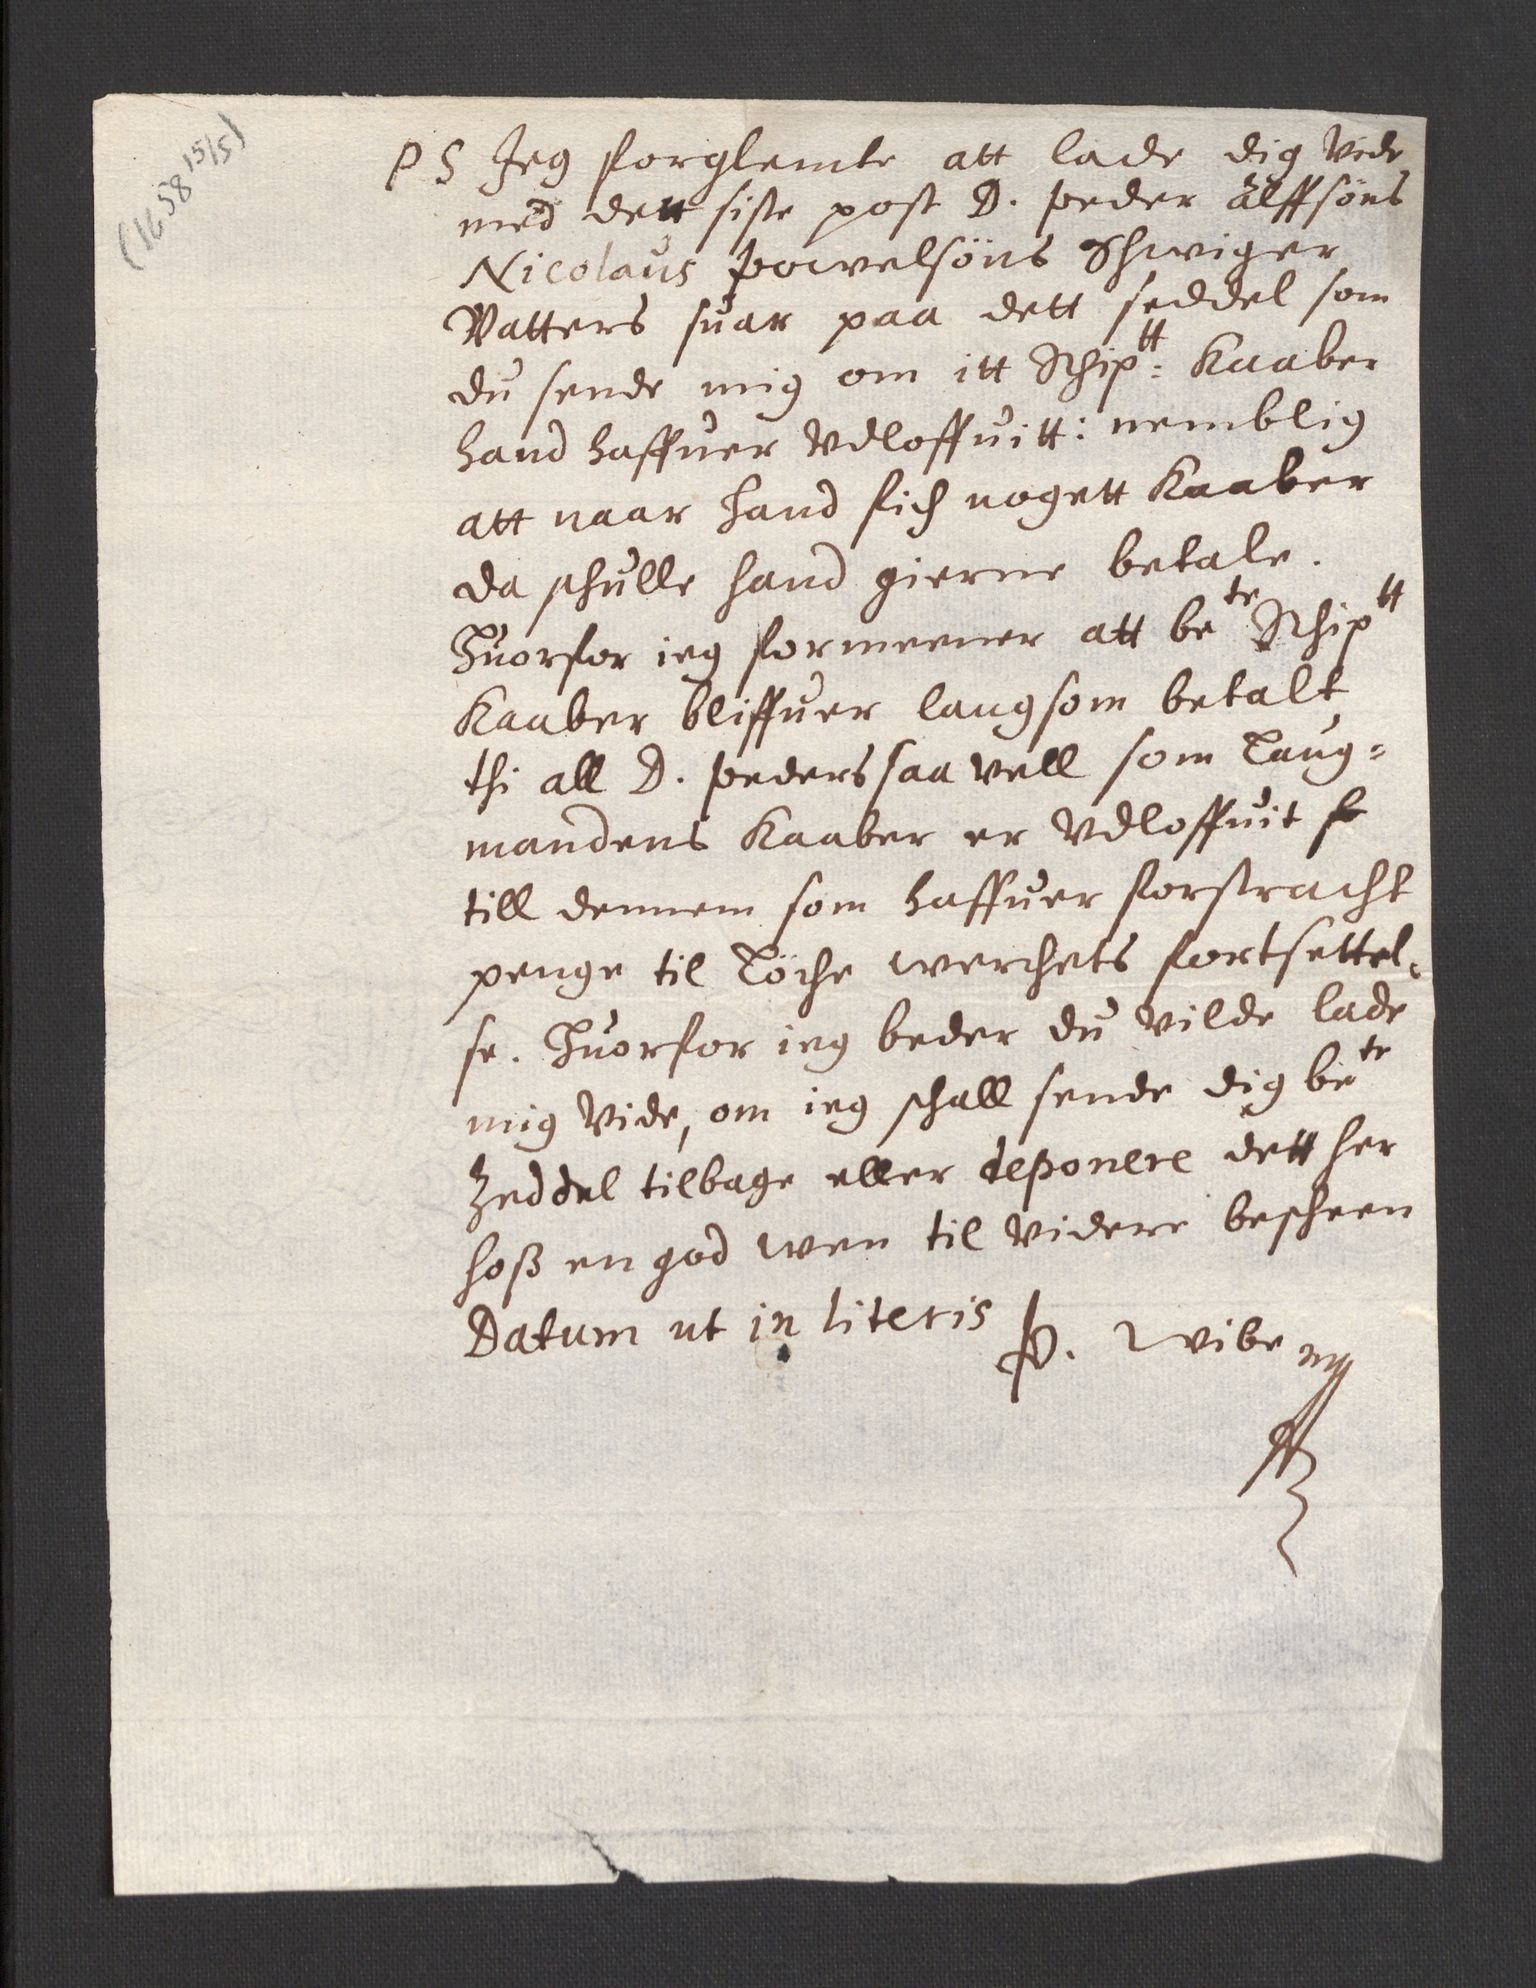 (1658 15/5)
P S Jeg forglemte att lade dig vide
med dett siste post D. Peder Alffsöns
Nicolaus Powelsöns Schwiger
Vatters suar paa dett seddel som
du sende mig om itt Schiptt: Kaaber
hand haffuer Vdloffuitt: nemblig
att naar hand fich nogett Kaaber
da schulle hand gierne betale.
Huorfor ieg formeener att bete Schiptt
Kaaber bliffuer langsom betalt
thi all D. Peders saa vell som Laug=
mandens Kaaber er Vdloffuit
till dennem som haffuer forstracht
penge til Löche werchets fortsettel=
se. Huorfor ieg beder du vilde lade
mig vide, om ieg schall sende dig bete
Zeddel tilbage eller deponere dett her
hoß en god wen til videre bescheen
Datum ut in literis P. Wibe mp